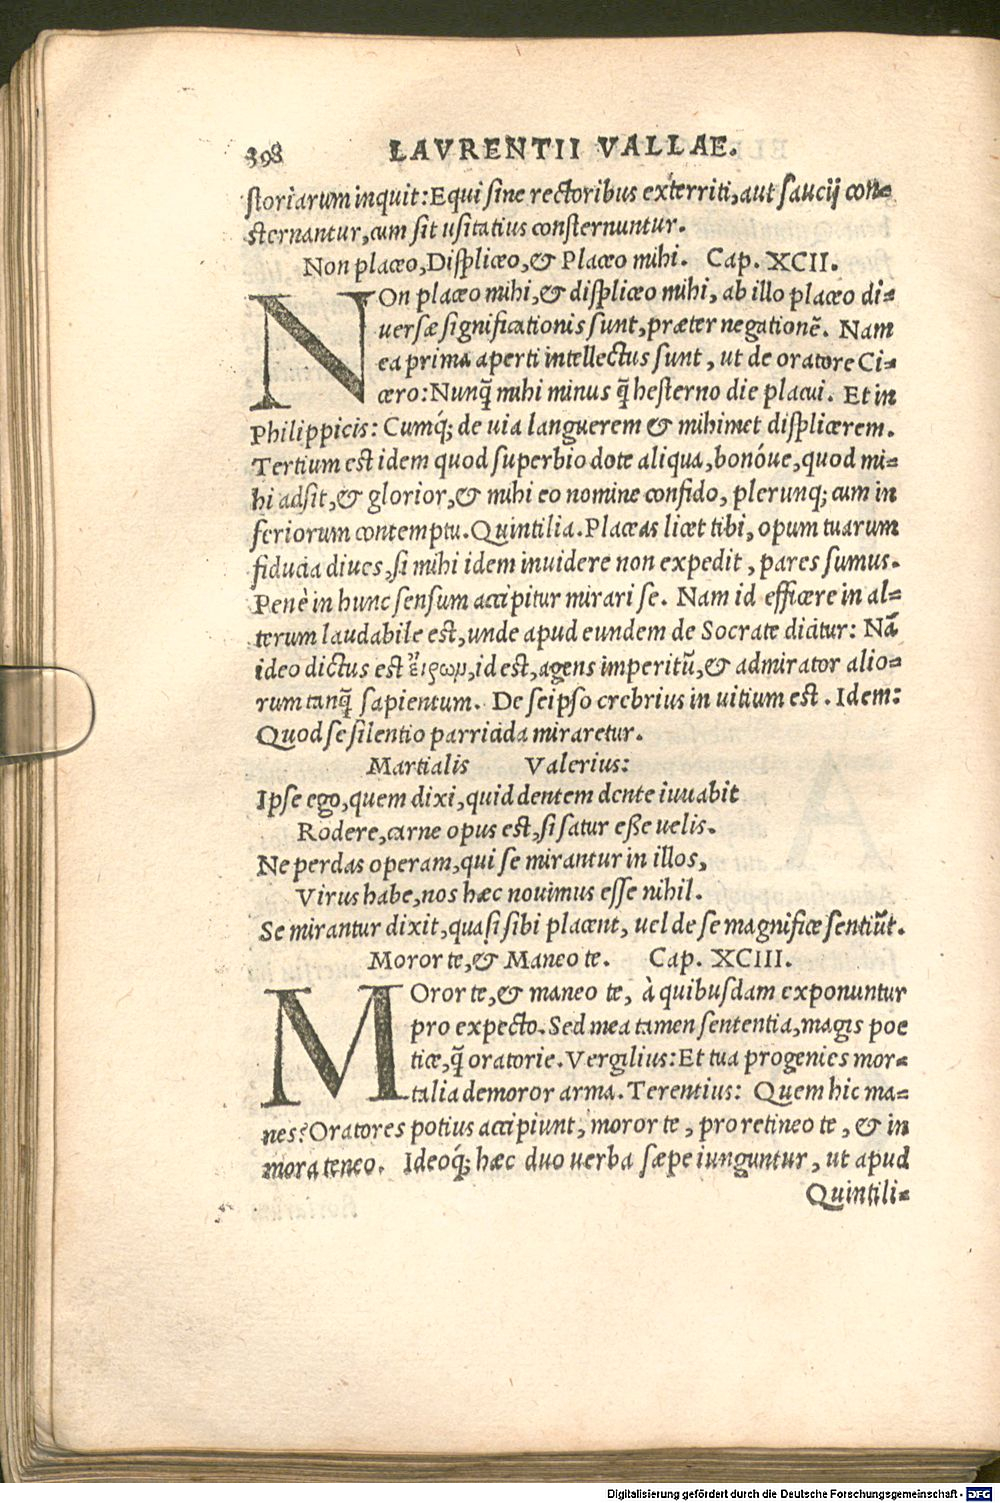 398 LAVRENTII VALLAE.
storiarum inquit: Equi sine rectoribus exterriti, aut saucij con-
sternantur, cum sit usitatius consternuntur.
Non placeo, Displiceo, & Placeo mihi. Cap. XCII.
NOn placeo mihi, & displiceo mihi, ab illo placeo di-
uersæ significationis sunt, præter negationē. Nam
ea prima aperti intellectus sunt, ut de oratore Ci-
cero: Nunq̃ mihi minus q̃ hesterno die placui. Et in
Philippicis: Cumq́; de uia languerem & mihimet displicerem.
Tertium est idem quod superbio dote aliqua, bonóue, quod mi-
hi adsit, & glorior, & mihi eo nomine confido, plerunq; cum in
feriorum contemptu. Quintilia. Placeas licet tibi, opum tuarum
fiducia diues, si mihi idem inuidere non expedit, pares sumus.
Penè in hunc sensum accipitur mirari se. Nam id efficere in al-
terum laudabile est, unde apud eundem de Socrate dicitur: Nã
ideo dictus est εἴρων, id est, agens imperitũ, & admirator alio-
rum tanq̃ sapientum. De seipso crebrius in uitium est. Idem:
Quod se silentio parricida miraretur.
Martialis Valerius:
Ipse ego, quem dixi, quid dentem dente iuuabit
Rodere, carne opus est, si satur esse uelis.
Ne perdas operam, qui se mirantur in illos,
Virus habe, nos hæc nouimus esse nihil.
Se mirantur dixit, quasi sibi placent, uel de se magnifice sentiũt.
Moror te, & Maneo te. Cap. XCIII.
MOror te, & maneo te, à quibusdam exponuntur
pro expecto. Sed mea tamen sententia, magis poe
ticæ, q̃ oratorie. Vergilius: Et tua progenies mor-
talia demoror arma. Terentius: Quem hic ma-
nes? Oratores potius accipiunt, moror te, pro retineo te, & in
mora teneo. Ideoq́; hæc duo uerba sæpe iunguntur, ut apud
Quintili-
Digitalisierung gefördert durch die Deutsche Forschungsgemeinschaft - DFG